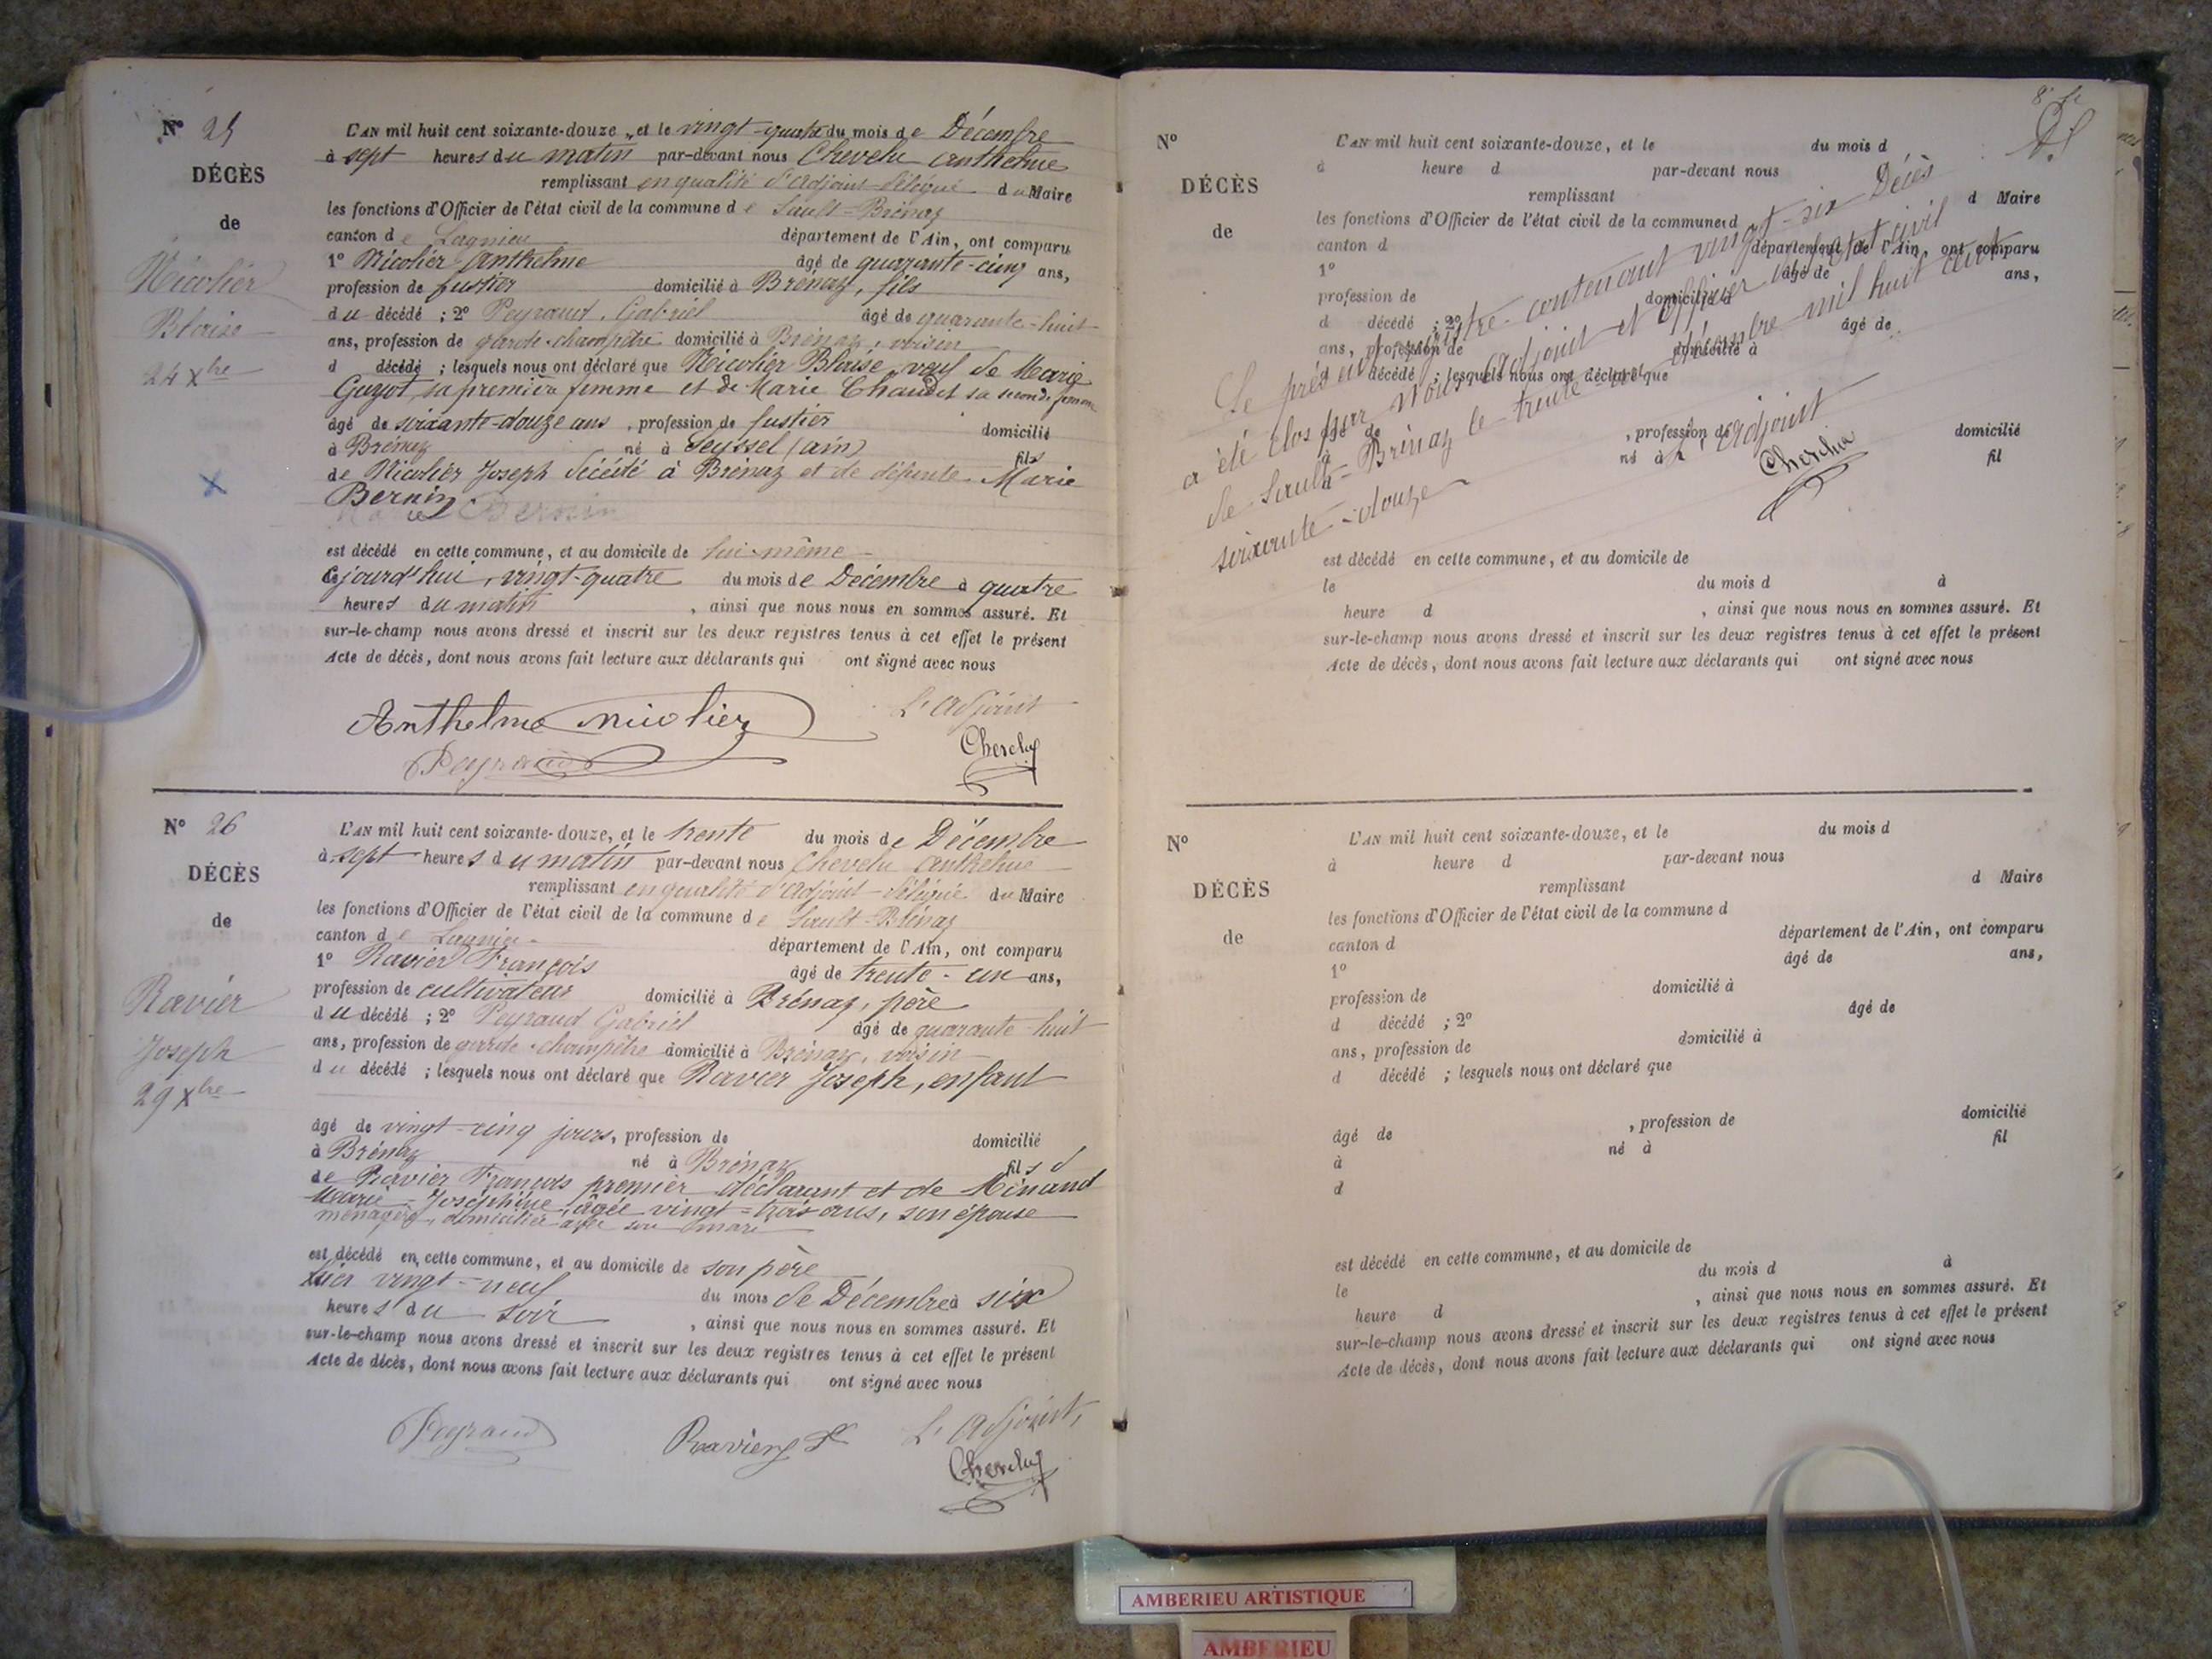 N° 25
DÉCÈS
de
Nicolier
Blaise
24 Xbre
L'AN mil huit cent soixante-douze, et le vingt-quatre du mois de Décembre
à sept heures du matin par-devant nous Chevelu Anthelme
remplissant en qualité d'Adjoint délégué du Maire
les fonctions d'Officier de l'état civil de la commune de Sault-Brénaz
canton de Lagnieu département de l'Ain, ont comparu
1° Nicolier Anthelme âgé de quarante-cinq ans,
profession de fustier domicilié à Brénaz, fils
du décédé ; 2° Peyraud Gabriel âgé de quarante-huit
ans, profession de garde-champêtre domicilié à Brénaz, voisin
d décédé ; lesquels nous ont déclaré que Nicolier Blaise, veuf de Marie
Guyot, sa première femme et de Marie Chaudet sa seconde femme
âgé de soixante-douze ans, profession de fustier domicilié
à Brénaz né à Seyssel (ain) fils
de Nicolier Joseph décédé à Brénaz et de défunte Marie
Bernin
est décédé en cette commune, et au domicile de lui-même
Cejourd'hui, vingt-quatre du mois de Décembre à quatre
heures du matin, ainsi que nous nous en sommes assuré. Et
sur-le-champ nous avons dressé et inscrit sur les deux registres tenus à cet effet le présent
Acte de décès, dont nous avons fait lecture aux déclarants qui ont signé avec nous
Anthelme nicolier L'Adjoint
Peyraud
N° 26
DÉCÈS
de
Ravier
Joseph
29 Xbre
L'AN mil huit cent soixante-douze, et le trente du mois de Décembre
à sept heures du matin par-devant nous Chevelu Anthelme
remplissant en qualité d'Adjoint délégué du Maire
les fonctions d'Officier de l'état civil de la commune de Sault-Brénaz
canton de Lagnieu département de l'Ain, ont comparu
1° Ravier François âgé de trente-un ans,
profession de cultivateur domicilié à Brénaz, père
du décédé ; 2° Peyraud Gabriel âgé de quarante-huit
ans, profession de garde-champêtre domicilié à Brénaz, voisin
du décédé ; lesquels nous ont déclaré que Ravier Joseph, enfant
âgé de vingt-cinq jours, profession de domicilié
à Brénaz né à Brénaz fils
de Ravier François premier déclarant et de Minand
Marie-Joséphine, âgée vingt-trois ans, son épouse
ménagère, domiciliée avec son mari
est décédé en cette commune, et au domicile de son père
hier vingt-neuf du mois de Décembre à six
heures du soir, ainsi que nous nous en sommes assuré. Et
sur-le-champ nous avons dressé et inscrit sur les deux registres tenus à cet effet le présent
Acte de décès, dont nous avons fait lecture aux déclarants qui ont signé avec nous
Peyraud Ravier L'Adjoint,
N°
DÉCÈS
de
L'AN mil huit cent soixante-douze, et le du mois d
à heure d par-devant nous
remplissant d Maire
les fonctions d'Officier de l'état civil de la commune d
canton d département de l'Ain, ont comparu
1° âgé de ans,
profession de domicilié à
d décédé ; 2° âgé de
ans, profession de domicilié à
d décédé ; lesquels nous ont déclaré que
âgé de , profession de domicilié
à né à fil
d
Le présent registre contenant vingt-six Décès
a été clos par Nous Adjoint et officier de l'état civil
de Sault-Brénaz le trente-un décembre mil huit cent
soixante-douze
L'Adjoint
est décédé en cette commune, et au domicile de
le du mois d à
heure d , ainsi que nous nous en sommes assuré. Et
sur-le-champ nous avons dressé et inscrit sur les deux registres tenus à cet effet le présent
Acte de décès, dont nous avons fait lecture aux déclarants qui ont signé avec nous
N°
DÉCÈS
de
L'AN mil huit cent soixante-douze, et le du mois d
à heure d par-devant nous
remplissant d Maire
les fonctions d'Officier de l'état civil de la commune d
canton d département de l'Ain, ont comparu
1° âgé de ans,
profession de domicilié à
d décédé ; 2° âgé de
ans, profession de domicilié à
d décédé ; lesquels nous ont déclaré que
âgé de , profession de domicilié
à né à fil
d
est décédé en cette commune, et au domicile de
le du mois d à
heure d , ainsi que nous nous en sommes assuré. Et
sur-le-champ nous avons dressé et inscrit sur les deux registres tenus à cet effet le présent
Acte de décès, dont nous avons fait lecture aux déclarants qui ont signé avec nous
AMBERIEU ARTISTIQUE
AMBERIEU